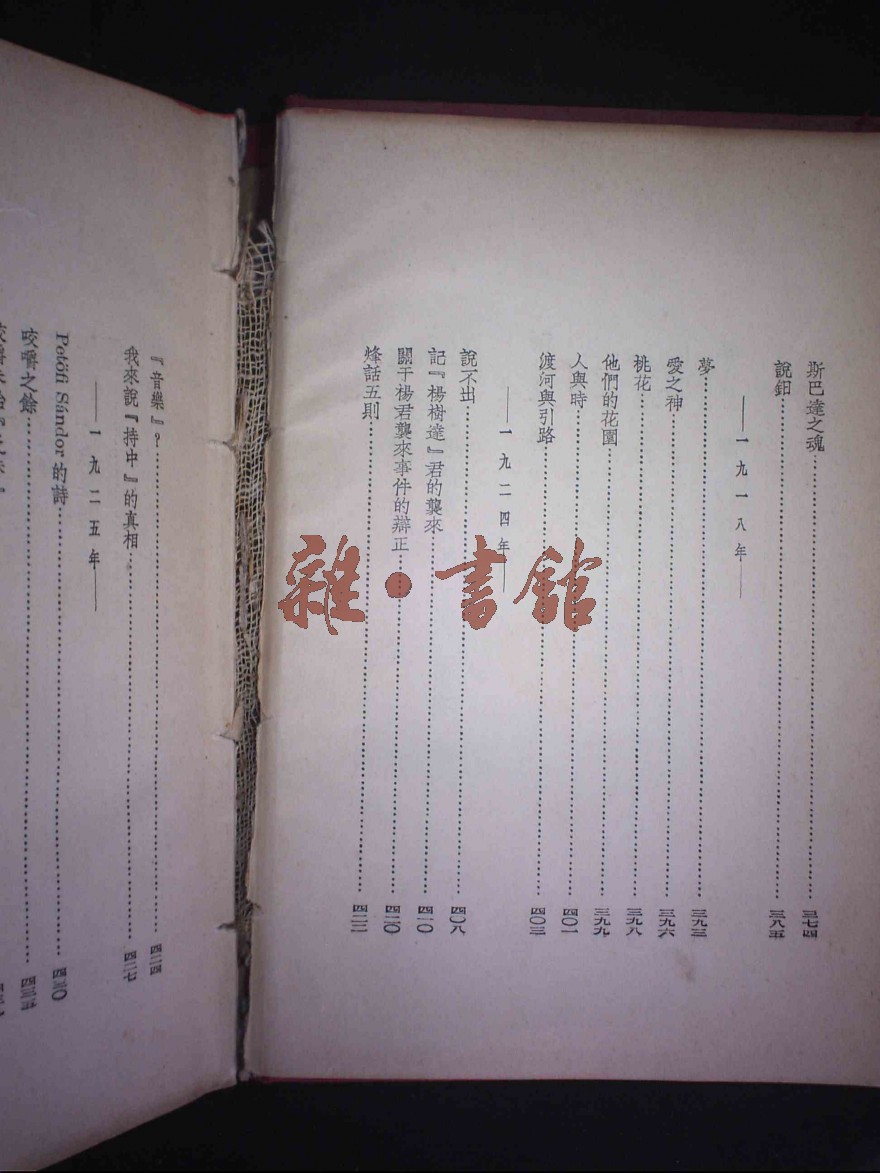 斯巴達之魂……三七四
說鈤……三八五
——一九一八年——
夢……三九三
愛之神……三九六
桃花……三九八
他們的花園……三九九
人與時……四〇一
渡河與引路……四〇三
——一九二四年——
說不出……四〇八
記『楊樹達』君的襲來……四一〇
關于楊君襲來事件的辯正……四二〇
烽話五則……四二二
『音樂』？……四二四
我來說『持中』的真相……四二七
——一九二五年——
Petöfi Sándor 的詩……四三〇
咬嚼之餘……四三五
雜·書館